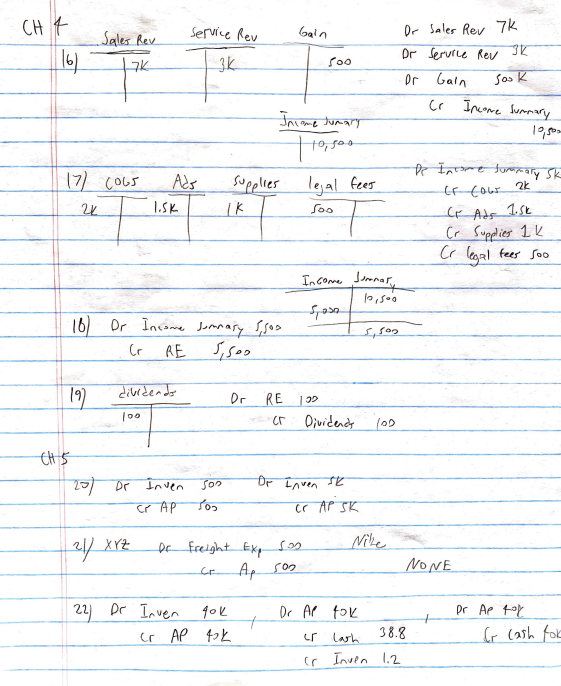 CH 4
16) Sales Rev Service Rev Gain
7K 3K 500
Dr Sales Rev 7K
Dr Service Rev 3K
Dr Gain 500K
Cr Income Summary
10,500
Income Summary
10,500
17) COGS Ads Supplies legal fees
2K 1.5K 1K 500
Dr Income Summary 5K
Cr COGS 2K
Cr Ads 1.5K
Cr Supplies 1K
Cr legal fees 500
Income Summary
10,500
5,000
5,500
18) Dr Income Summary 5,500
Cr RE 5,500
19) dividends Dr RE 100
100 Cr Dividends 100
CH 5
20) Dr Inven 500 Dr Inven 5K
Cr AP 500 Cr AP 5K
21) XYZ Dr Freight Exp 500 Nike
Cr Ap 500 NONE
22) Dr Inven 40K , Dr AP 40K , Dr AP 40K
Cr AP 40K Cr Cash 38.8 Cr Cash 40K
Cr Inven 1.2